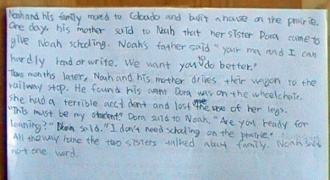 Noah and his family moved to Colorado and built a house on the prairie.
One day, his mother said to Noah that her sister Dora came to
give Noah schooling. Noah's father said "your ma and I can
hardly read or write. We want you to do better."
Two months later, Noah and his mother drives their wagon to the
railway stop. He found his aunt Dora was on the wheelchair.
she had a terrible accident and lost the use of her legs.
"This must be my student," Dora said to Noah. "Are you ready for
learning?" Dora said. "I don't need schooling on the prairie."
All the way home the two sisters talked about family. Noah said
not one word.